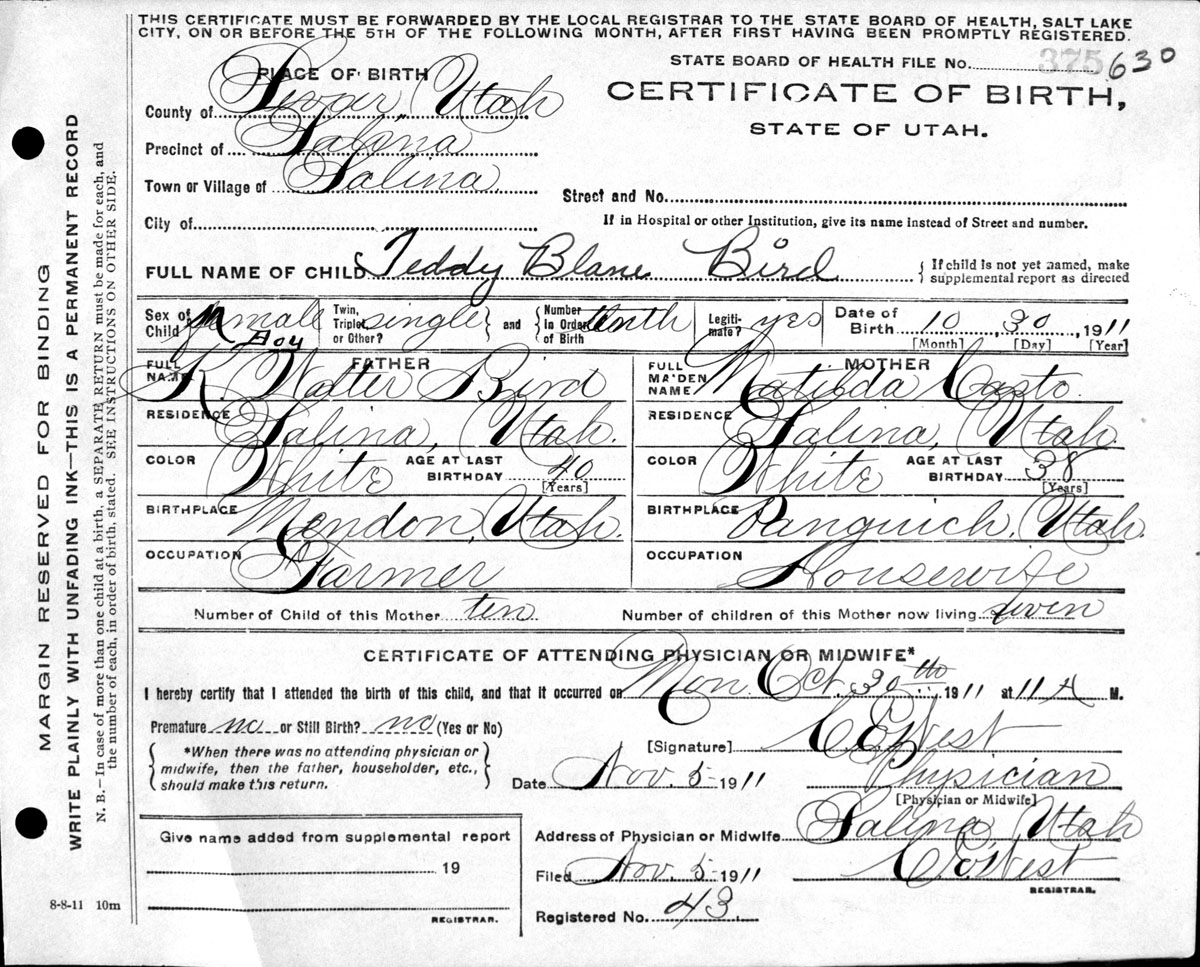 THIS CERTIFICATE MUST BE FORWARDED BY THE LOCAL REGISTRAR TO THE STATE BOARD OF HEALTH, SALT LAKE
CITY, ON OR BEFORE THE 5TH OF THE FOLLOWING MONTH, AFTER FIRST HAVING BEEN PROMPTLY REGISTERED.
STATE BOARD OF HEALTH FILE No. 375 630
PLACE OF BIRTH
CERTIFICATE OF BIRTH,
STATE OF UTAH.
County of Sevier, Utah
Precinct of Salina
Town or Village of Salina
Street and No.
City of
If in Hospital or other Institution, give its name instead of Street and number.
FULL NAME OF CHILD Teddy Blane Bird { If child is not yet named, make supplemental report as directed
Sex of Child male Boy Twin, Triplet or Other? single } and { Number in Order of Birth tenth Legiti-mate? yes Date of Birth 10, 30, 1911
[Month] [Day] [Year]
FATHER MOTHER
FULL NAME R. Walter Bird FULL MAIDEN NAME Matilda Casto
RESIDENCE Salina, Utah. RESIDENCE Salina, Utah.
COLOR White AGE AT LAST BIRTHDAY 40 [Years] COLOR White AGE AT LAST BIRTHDAY 38 [Years]
BIRTHPLACE Mendon, Utah. BIRTHPLACE Panguich, Utah.
OCCUPATION Farmer OCCUPATION Housewife
Number of Child of this Mother ten Number of children of this Mother now living seven
CERTIFICATE OF ATTENDING PHYSICIAN OR MIDWIFE*
I hereby certify that I attended the birth of this child, and that it occurred on Mon. Oct. 30th, 1911 at 11 A M.
Premature no or Still Birth? no (Yes or No)
{ *When there was no attending physician or midwife, then the father, householder, etc., should make this return. }
[Signature] C. E. West
Date Nov. 5 1911 Physician
[Physician or Midwife]
Give name added from supplemental report
19
REGISTRAR.
Address of Physician or Midwife Salina, Utah
Filed Nov. 5 1911 C. E. West
REGISTRAR.
Registered No. 43
8-8-11 10m
MARGIN RESERVED FOR BINDING
WRITE PLAINLY WITH UNFADING INK—THIS IS A PERMANENT RECORD
N. B.—In case of more than one child at a birth, a SEPARATE RETURN must be made for each, and
the number of each, in order of birth, stated. SEE INSTRUCTIONS ON OTHER SIDE.